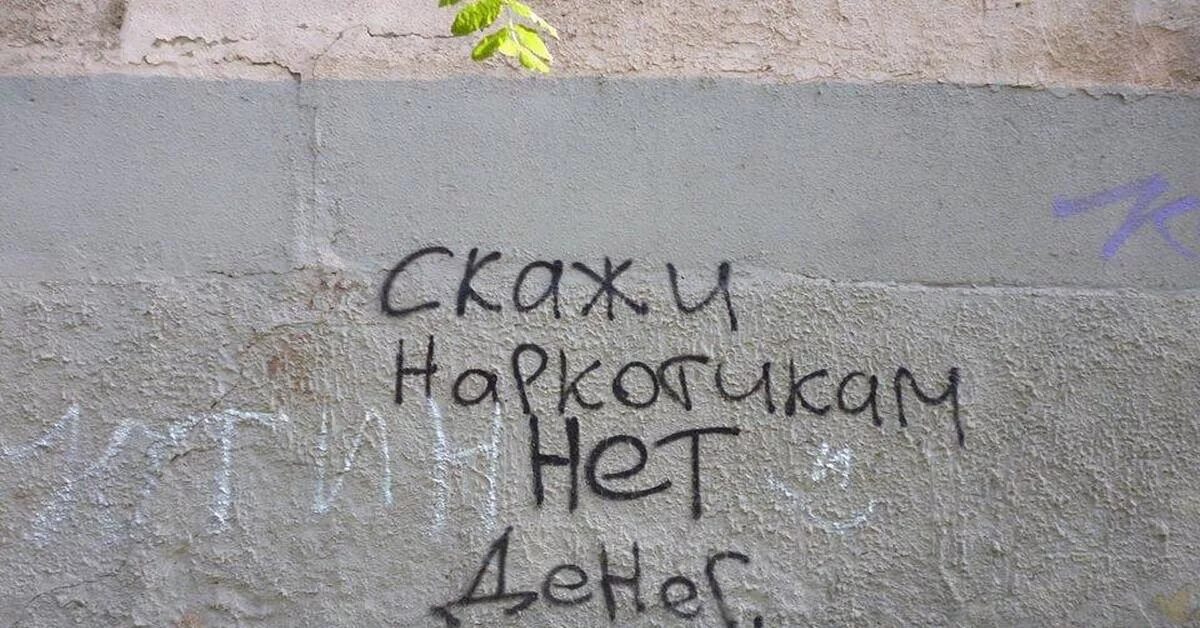 Скажи
наркотикам
нет
денег.